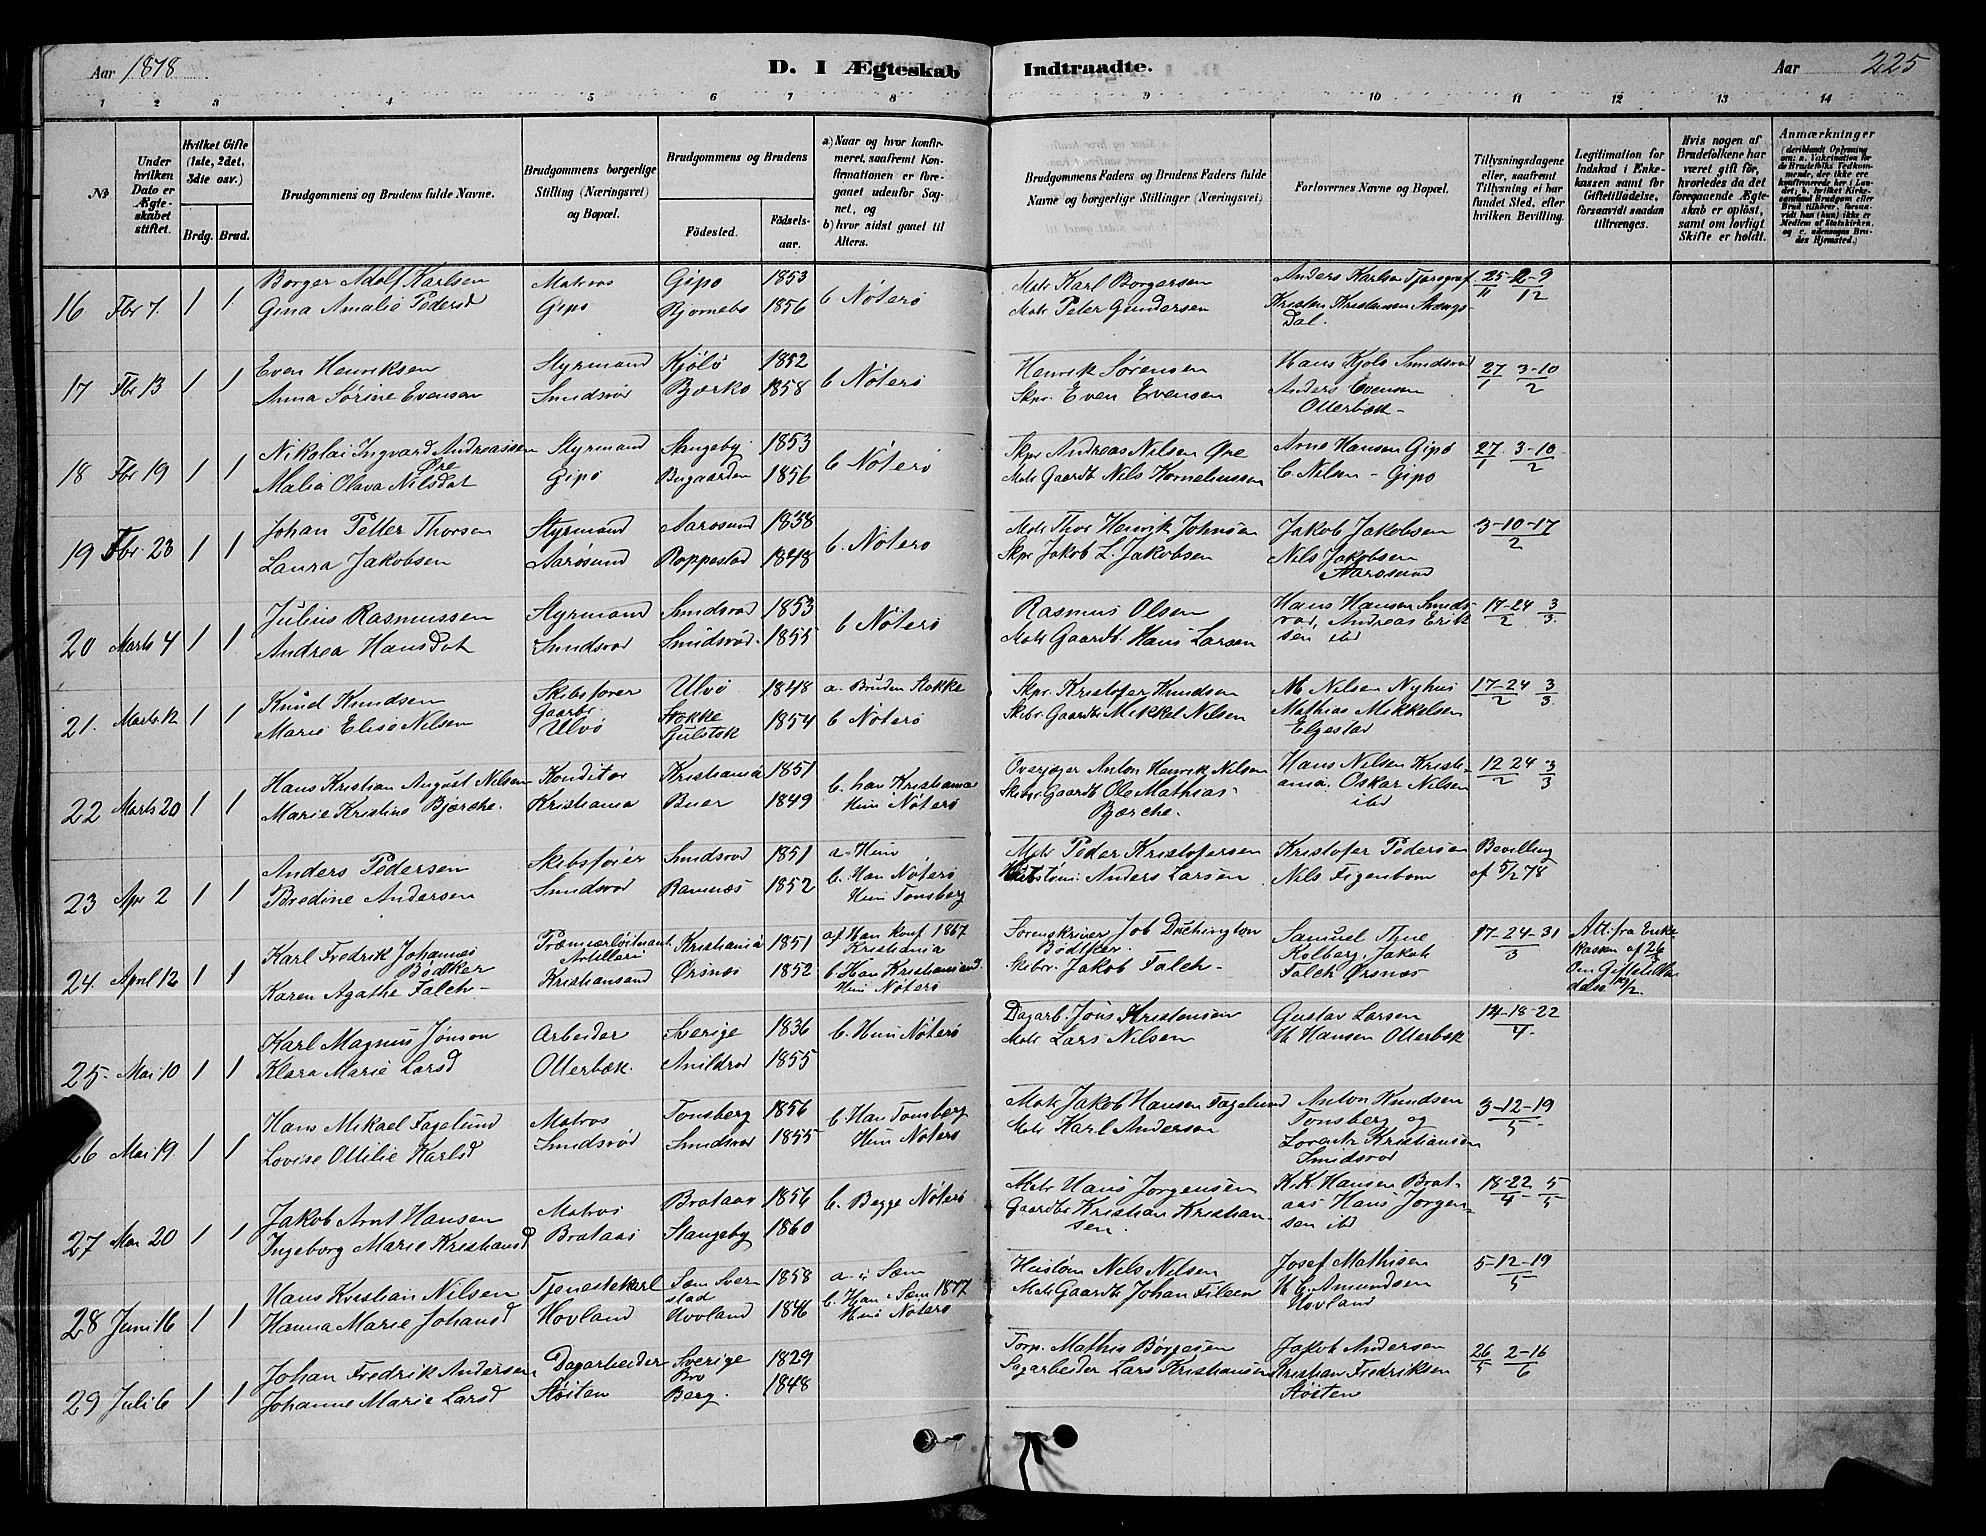 Aar 1878
D. I Ægteskab Indtraadte.
Aar 225
1 2 3 4 5 6 7 8 9 10 11 12 13 14
No
Under hvilken Dato er Ægteskabet stiftet.
Hvilket Gifte (1ste, 2det, 3die osv.)
Brdg. Brud.
Brudgommens og Brudens fulde Navne.
Brudgommens borgerlige Stilling (Næringsvei) og Bopæl.
Brudgommens og Brudens
Fødested.
Fødselsaar.
a) Naar og hvor konfirmeret, saafremt Konfirmationen er foregaaet udenfor Sognet, og
b) hvor sidst gaaet til Alters.
Brudgommens Faders og Brudens Faders fulde Navne og borgerlige Stillinger (Næringsvei)
Forlovernes Navne og Bopæl.
Tillysningsdagene eller, saafremt Tillysning ei har fundet Sted, efter hvilken Bevilling.
Legitimation for Indskud i Ænkekassen samt for Giftetilladelse, forsaavidt saadan tiltrænges.
Hvis nogen af Brudefolkene har været gift før, hvorledes da det foregaaende Ægteskab er opløst, samt om lovligt Skifte er holdt.
Anmærkninger
16 Fbr 7. 1 1 Borger Adolf Karlsen Matros Gipø 1853 b Nøterø Matr Karl Borgersen Anders Karlsen 25 2-9
Gina Amalie Pedersd Gipø Bjørnebo 1856 Matr Peter Gundersen Kristen Kristensen 11 12
Dal.
17 Fbr 13 1 1 Even Henriksen Styrmand Kjølø 1852 b Nøterø Henrik Sørensen Hans Kjølø Smidsrød 27 3-10
Anna Sørine Evensen Smidsrød Bjerkø 1858 Skpr. Even Evensen Anders Evensen 1 2
Otterbæk-
18 Fbr 19 1 1 Nikolai Ingvard Andreassen Styrmand Stangeby 1853 b Nøterø Skpr Andreas Nilsen Øre Arne Hansen Gipø 27 3-10
Øre
Malia Olava Nilsdat Gipø Bugaarden 1856 Matr Gaardb Nils Korneliussen C. Nilsen - Gipø 1 2
19 Fbr 23 1 1 Johan Petter Thorsen Styrmand Aarøsund 1838 b. Nøterø Matr Thor Henrik Johnsen Jakob Jakobsen 3-10-17
Laura Jakobsen Aarøsund Roppestad 1848 Skpr Jakob L. Jakobsen Nils Jakobsen 2
Aarøsund
20 Marts 4 1 1 Julius Rasmussen Styrmand Smidsrød 1853 b Nøterø Rasmus Olsen Hans Hansen Smids- 17-24 3
rød, Andreas Erik 2 3.
Andrea Hansdat Smidsrød Smidsrød 1855 Matr Gaardb. Hans Larsen sen ibd
21. Marts 12 1 1 Knud Knudsen Skibsfører Ulvø 1848 a. Bruden Stokke Skpr. Kristofer Knudsen M Nilsen Nyhus 17-24 3
Gaardbr. Stokke
Marie Elise Nilsen Ulvø 1854 b Nøterø Skibr Gaardb Mikkel Nilsen Mathias Mikkelsen 2 3.
Elgestad
22 Marts 20 1 1 Hans Kristian August Nilsen Konditor Kristiania 1851 b. han Kristiania Overjæger Anton Henrik Nilsen Hans Nilsen Kristi- 12 24 3
Marie Kristine Bjerche. Kristiania Buer 1849 Hun Nøterø Skibr Gaardb Ole Mathias Bjerche. ania. Oskar Nilsen 2 3
ibd
23 Apr 2 1 1 Anders Pedersen Skibsfører Smidsrød 1851 a- Hun Matr Peder Kristofersen Kristofer Pedersen Bevilling
Bredine Andersen Smidsrød Ramnes 1852 b. Han Nøterø Anders Larsen Nils Figenbom af 5/2 78
Hun Tønsberg
24. April 12 1 1 Karl Fredrik Johannes Premierløitnant Kristiania 1851 af Han konf 1867 Sorenskriver Job Samuel Thue 17-24-31 Att. fra Enke-
Bødtker Artilleri Kristiania Bødtker. Kolberg, Jakob 3 kassen af 26
Karen Agathe Falch- Kristiansand Ørsnes 1852 b Han Kristiansand. Skibr. Jakob Falch- Falch Ørsnæs Om Giftetilla
Hun Nøterø delse
25. Mai 10 1 1 Karl Magnus Jønson Arbeider Sverige 1836 b. Hun Nøterø Dagarb. Jøns Kristensen Gustav Larsen 14-18-22
Klara Marie Larsd Otterbæk. 1855 Matr Lars Nilsen Hansen Otterbæk 4.
26 Mai 19 1 1 Hans Mikael Fagelund Matros Tønsberg 1856 b. Han Tønsberg Matr Jakob Hansen Fagelund Anton Knudsen 3-12-19
Lovise Ottilie Karlsd Smidsrød Smidsrød 1855 Hun Nøterø Matr Karl Andersen Tønsberg og 5
Lorentz Kristiansen
Smidsrød
27 Mai 20 1 1 Jakob Arnt Hansen Matros Brataas 1856 b. Begge Nøterø Matr Hans Jørgensen K.K. Hansen Brat- 18-22 5
Ingeborg Marie Kristiansd Brataas Stangeby 1860 Gaardbr Kristian Kristian- aas Hans Jørgen- 4 5
sen. sen ibd
28 Juni 16 1 1 Hans Kristian Nilsen Tjenestekarl Sem 1858 a. i Sem Nils Nilsen Josef Mathisen 5-12-19
stad b. Han i Sem 1877 5
Hanna Marie Johansd Hovland Hovland 1846 Hun Nøterø Matr Gaardb Johan Amundsen
Hovland
29 Juli 6 1 1 Johan Fredrik Andersen Dagarbeider Sverige 1829 Torp. Mathis Børgesen Jakob Andersen 26 2-16
Bro
Johanne Marie Larsd Støiten Berg. 1848 Sagarbeider Lars Kristiansen Kristian Fredriksen 5 6
Støiten